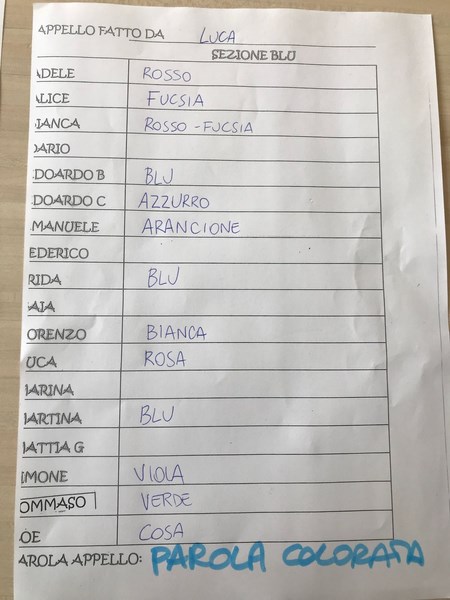 APPELLO FATTO DA LUCA
SEZIONE BLU
ADELE ROSSO
ALICE FUCSIA
IANCA ROSSO-FUCSIA
DARIO
DOARDO B BLU
DOARDO C AZZURRO
MANUELE ARANCIONE
EDERICO
RIDA BLU
AIA
ORENZO BIANCA
UCA ROSA
ARINA
ARTINA BLU
ATTIA G
IMONE VIOLA
OMMASO VERDE
OE COSA
AROLA APPELLO: PAROLA COLORATA